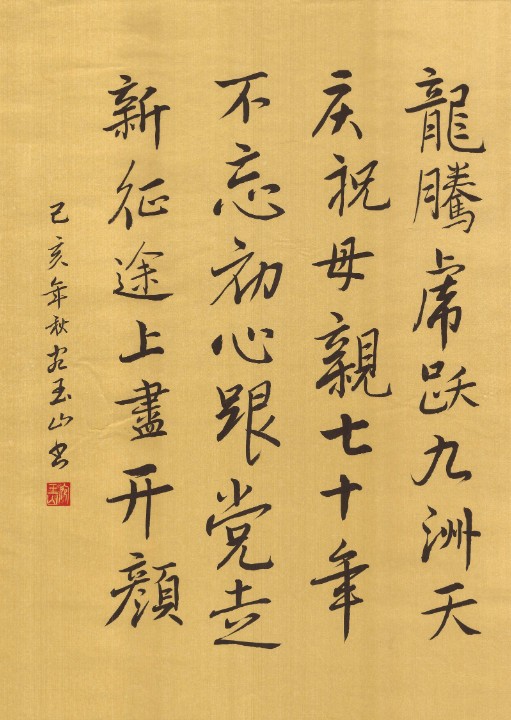 龍騰虎跃九洲天
庆祝母親七十年
不忘初心跟党走
新征途上盡开顔
己亥年秋玉山书